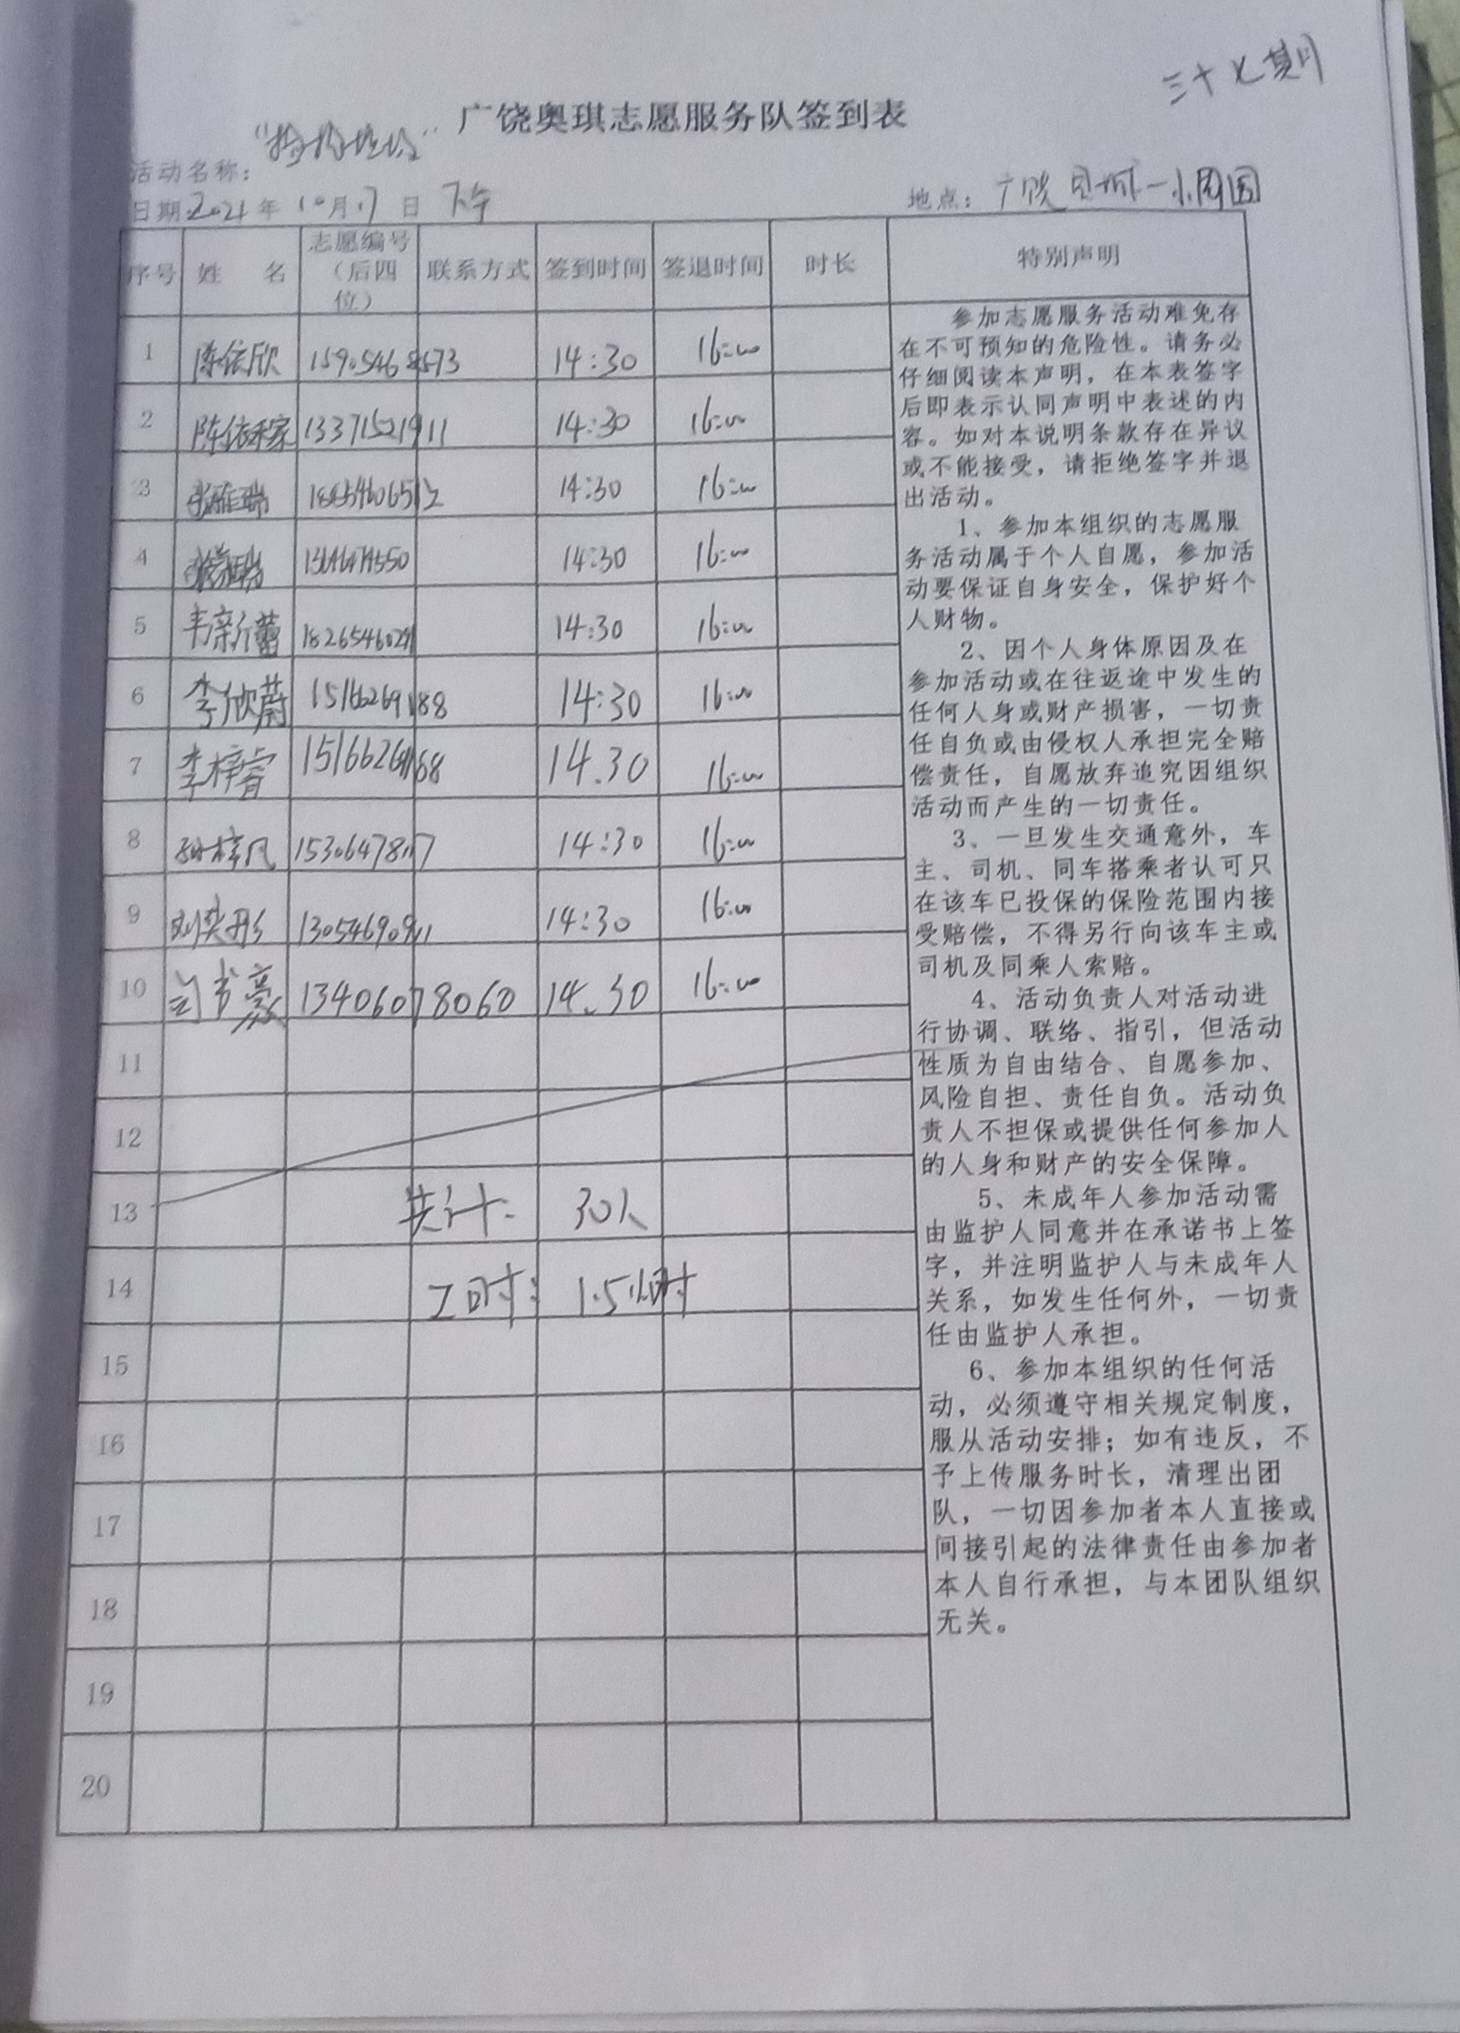 三十七期
广饶奥琪志愿服务队签到表
活动名称：
日期2021年10月17日 下午 地点：广饶 一小周围
序号 姓 名 志愿编号（后四位） 联系方式 签到时间 签退时间 时长 特别声明
1 陈依欣 15905468573 14:30 16:00
2 13371521911 14:30 16:00
3 14:30 16:00
4 14:30 16:00
5 14:30 16:00
6 李欣蔚 15166269188 14:30 16:00
7 李梓睿 14.30 16:00
8 14:30 16:00
9 14:30 16:00
10 13406078060 14.30 16:00
11
12
13 共计： 30人
14 工时： 1.5小时
15
16
17
18
19
20
参加志愿服务活动难免存
在不可预知的危险性。请务必
仔细阅读本声明，在本表签字
后即表示认同声明中表述的内
容。如对本说明条款存在异议
或不能接受，请拒绝签字并退
出活动。
1、参加本组织的志愿服
务活动属于个人自愿，参加活
动要保证自身安全，保护好个
人财物。
2、因个人身体原因及在
参加活动或在往返途中发生的
任何人身或财产损害，一切责
任自负或由侵权人承担完全赔
偿责任，自愿放弃追究因组织
活动而产生的一切责任。
3、一旦发生交通意外，车
主、司机、同车搭乘者认可只
在该车已投保的保险范围内接
受赔偿，不得另行向该车主或
司机及同乘人索赔。
4、活动负责人对活动进
行协调、联络、指引，但活动
性质为自由结合、自愿参加、
风险自担、责任自负。活动负
责人不担保或提供任何参加人
的人身和财产的安全保障。
5、未成年人参加活动需
由监护人同意并在承诺书上签
字，并注明监护人与未成年人
关系，如发生任何外，一切责
任由监护人承担。
6、参加本组织的任何活
动，必须遵守相关规定制度，
服从活动安排；如有违反，不
予上传服务时长，清理出团
队，一切因参加者本人直接或
间接引起的法律责任由参加者
本人自行承担，与本团队组织
无关。